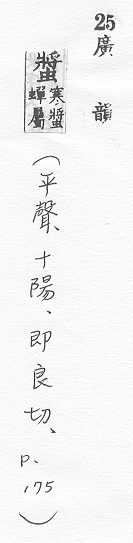 25廣韻
螿寒螿蟬屬
(平聲、十陽、即良切、p.175)